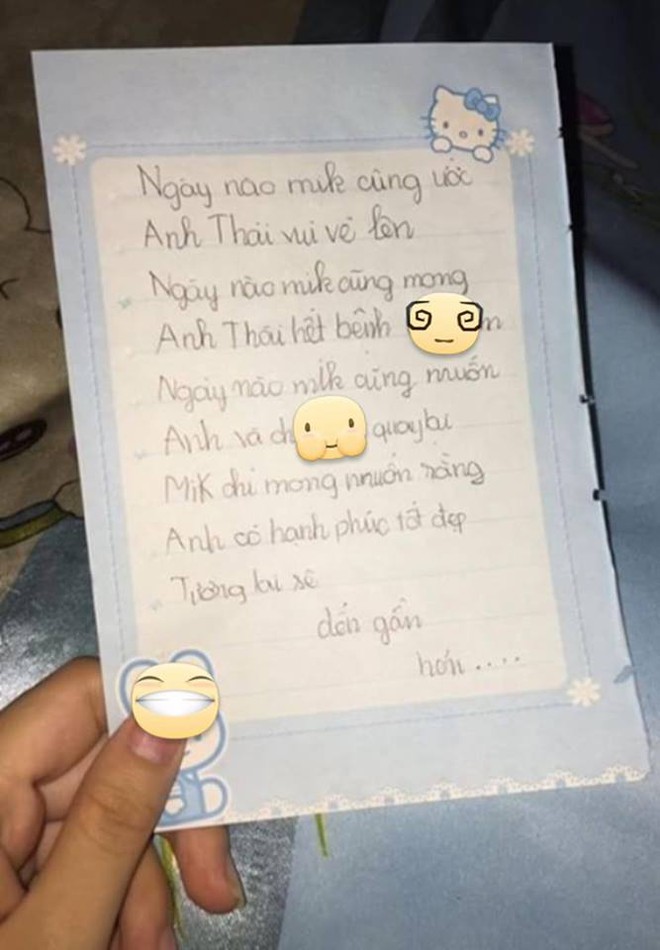 Ngày nào mik cũng ước
Anh Thái vui vẻ lên
Ngày nào mik cũng mong
Anh Thái hết bệnh
Ngày nào mik cũng muốn
Anh và quay lại
Mik chỉ mong muốn rằng
Anh có hạnh phúc tốt đẹp
Tương lai sẽ
đến gần
hơn ....